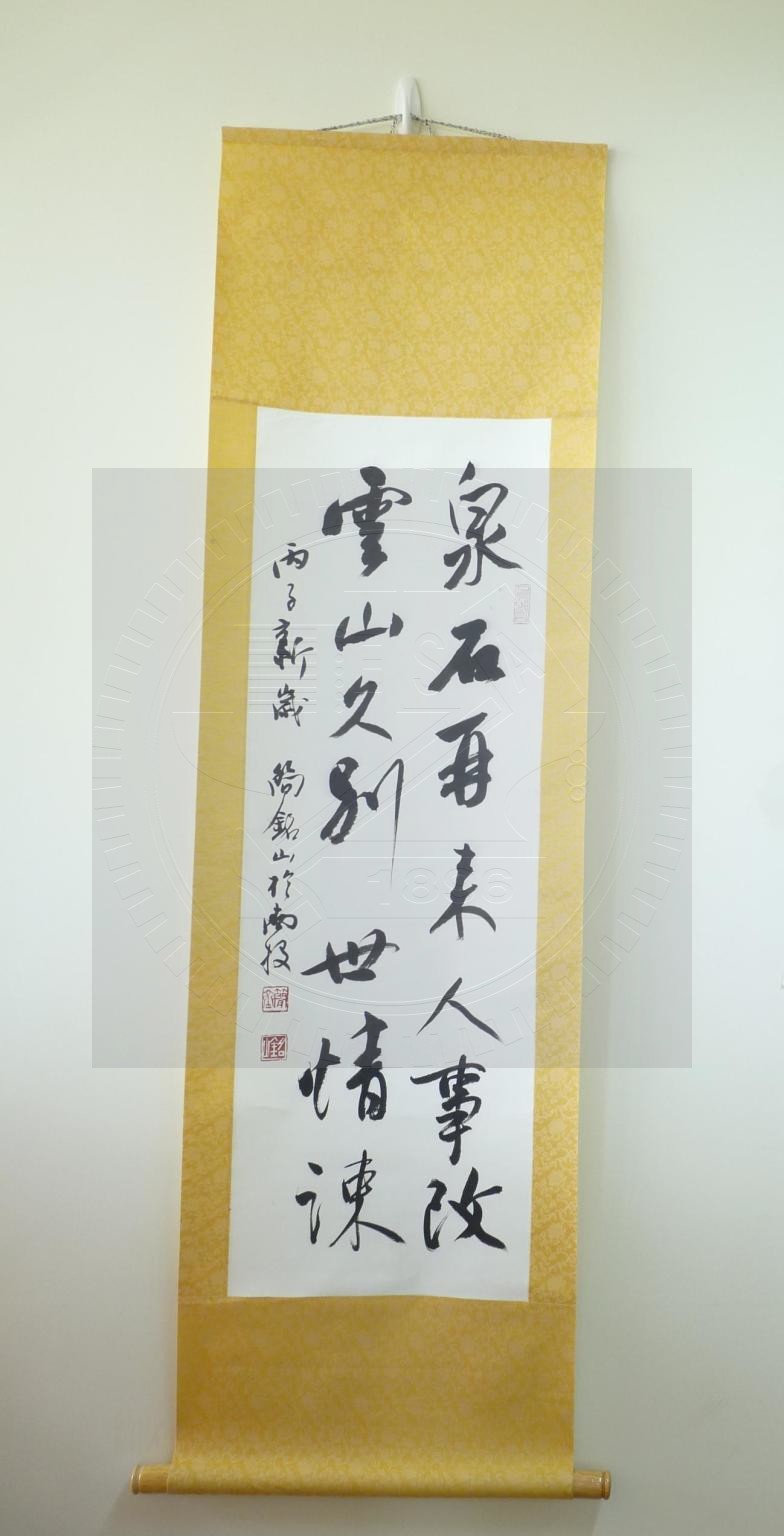 泉石再来人事改
雲山久別世情疎
丙子新歲 簡銘山於南投